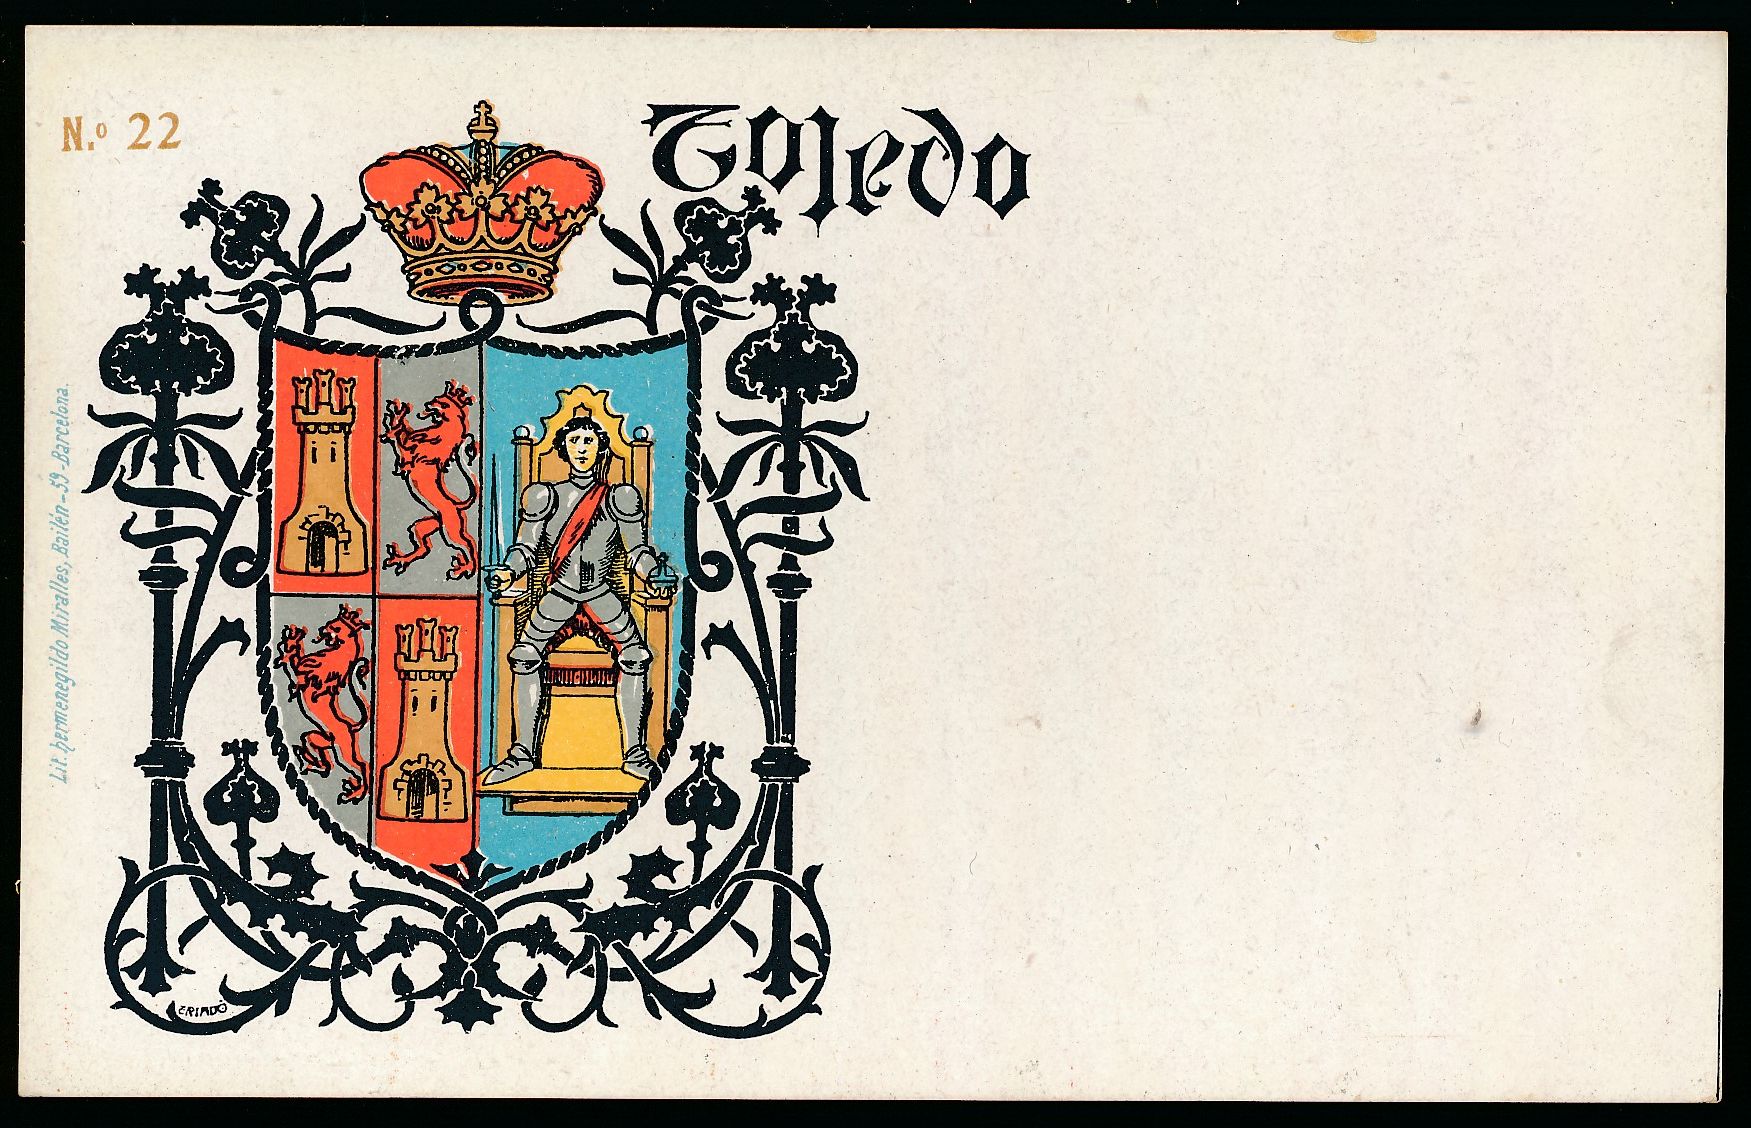 N.º 22
Toledo
Lit. hermenegildo Miralles, Bailén-59-Barcelona.
CRIADO